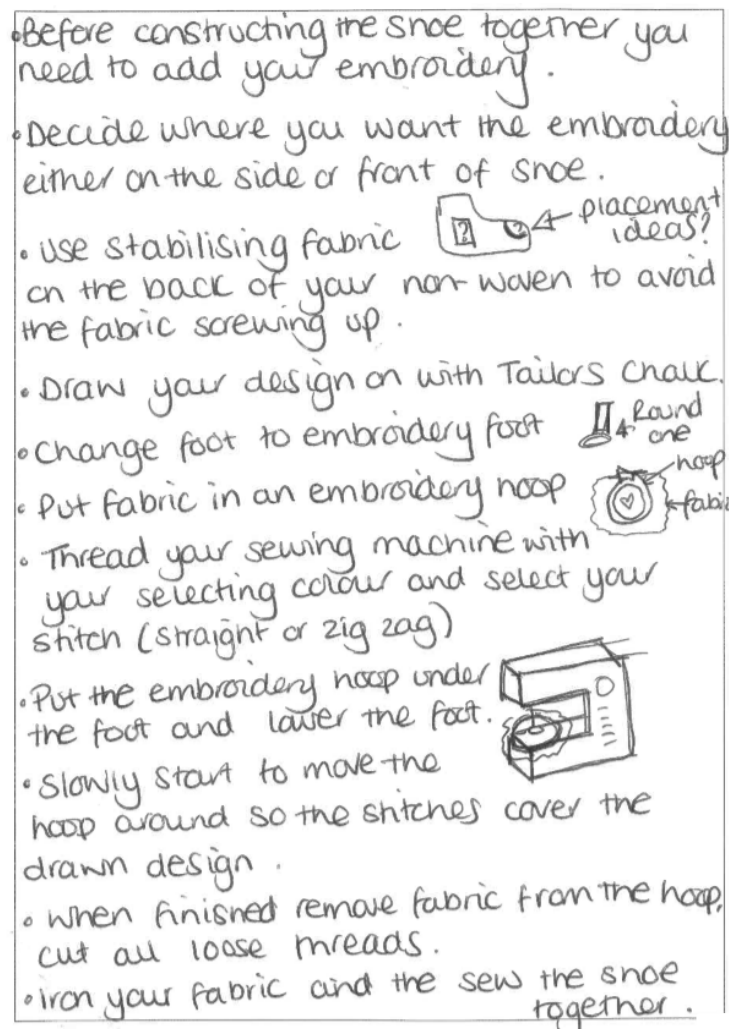 •Before constructing the shoe together you
need to add your embroidery.
•Decide where you want the embroidery
either on the side or front of shoe.
? ? placement
ideas?
•Use stabilising fabric
on the back of your non-woven to avoid
the fabric screwing up.
•Draw your design on with Tailors Chalk.
•Change foot to embroidery foot
Round
one
•Put fabric in an embroidery hoop
hoop
fabic
•Thread your sewing machine with
your selecting colour and select your
stitch (straight or zig zag)
•Put the embroidery hoop under
the foot and lower the foot.
•Slowly start to move the
hoop around so the stitches cover the
drawn design.
•When finished remove fabric from the hoop,
cut all loose threads.
•iron your fabric and the sew the shoe
together.